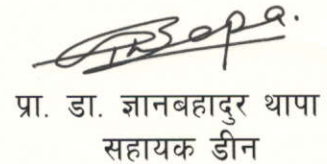 प्रा. डा. ज्ञानबहादुर थापा
सहायक डीन